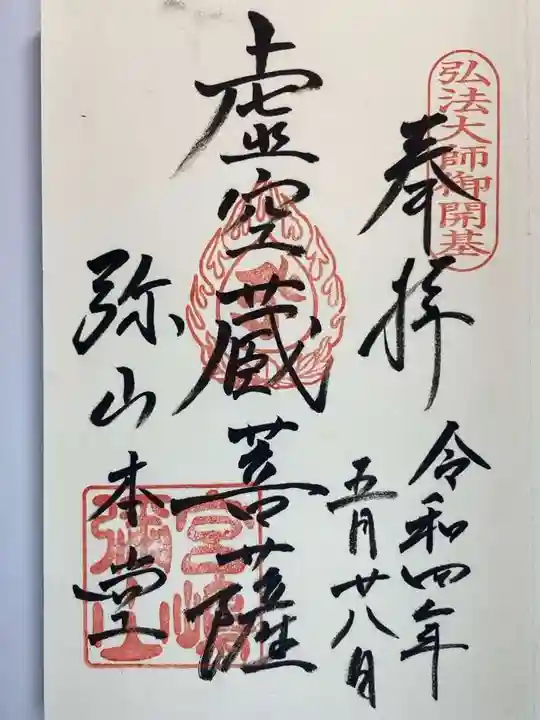 弘法大師御開基
奉拝
令和四年
五月廿八月
虚空蔵菩薩
弥山本堂
宮嶋
彌山